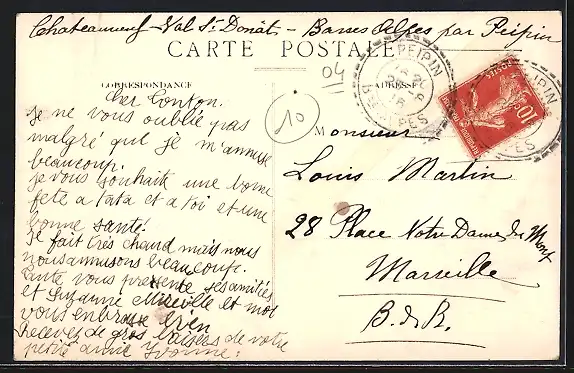 Chateauneuf-Val St Donat - Basses Alpes par Peipin
CARTE POSTALE
CORRESPONDANCE
ADRESSE
04
10
PEIPIN
Cher Tonton.
Je ne vous oublié pas
malgré qui je m'annuse
beaucoup.
je vous souhaite une bonne
fete a tata et a toi et une
bonne santé.
Je fait très chaud mais nous
nous annusons beaucoup.
tante vous pressente ses amitiés
et Suzanne Mireille et moi
vous enbrasse bien
Recevez de gros baisers de votre
petite amie Yvonne:
Monsieur
Louis Martin
28 Place Notre Dame du Mont
Marseille
B. d. R.
POSTES
10c
PEIPIN